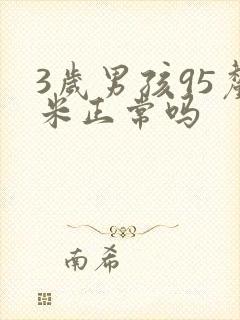 3岁男孩95厘
米正常吗
南希